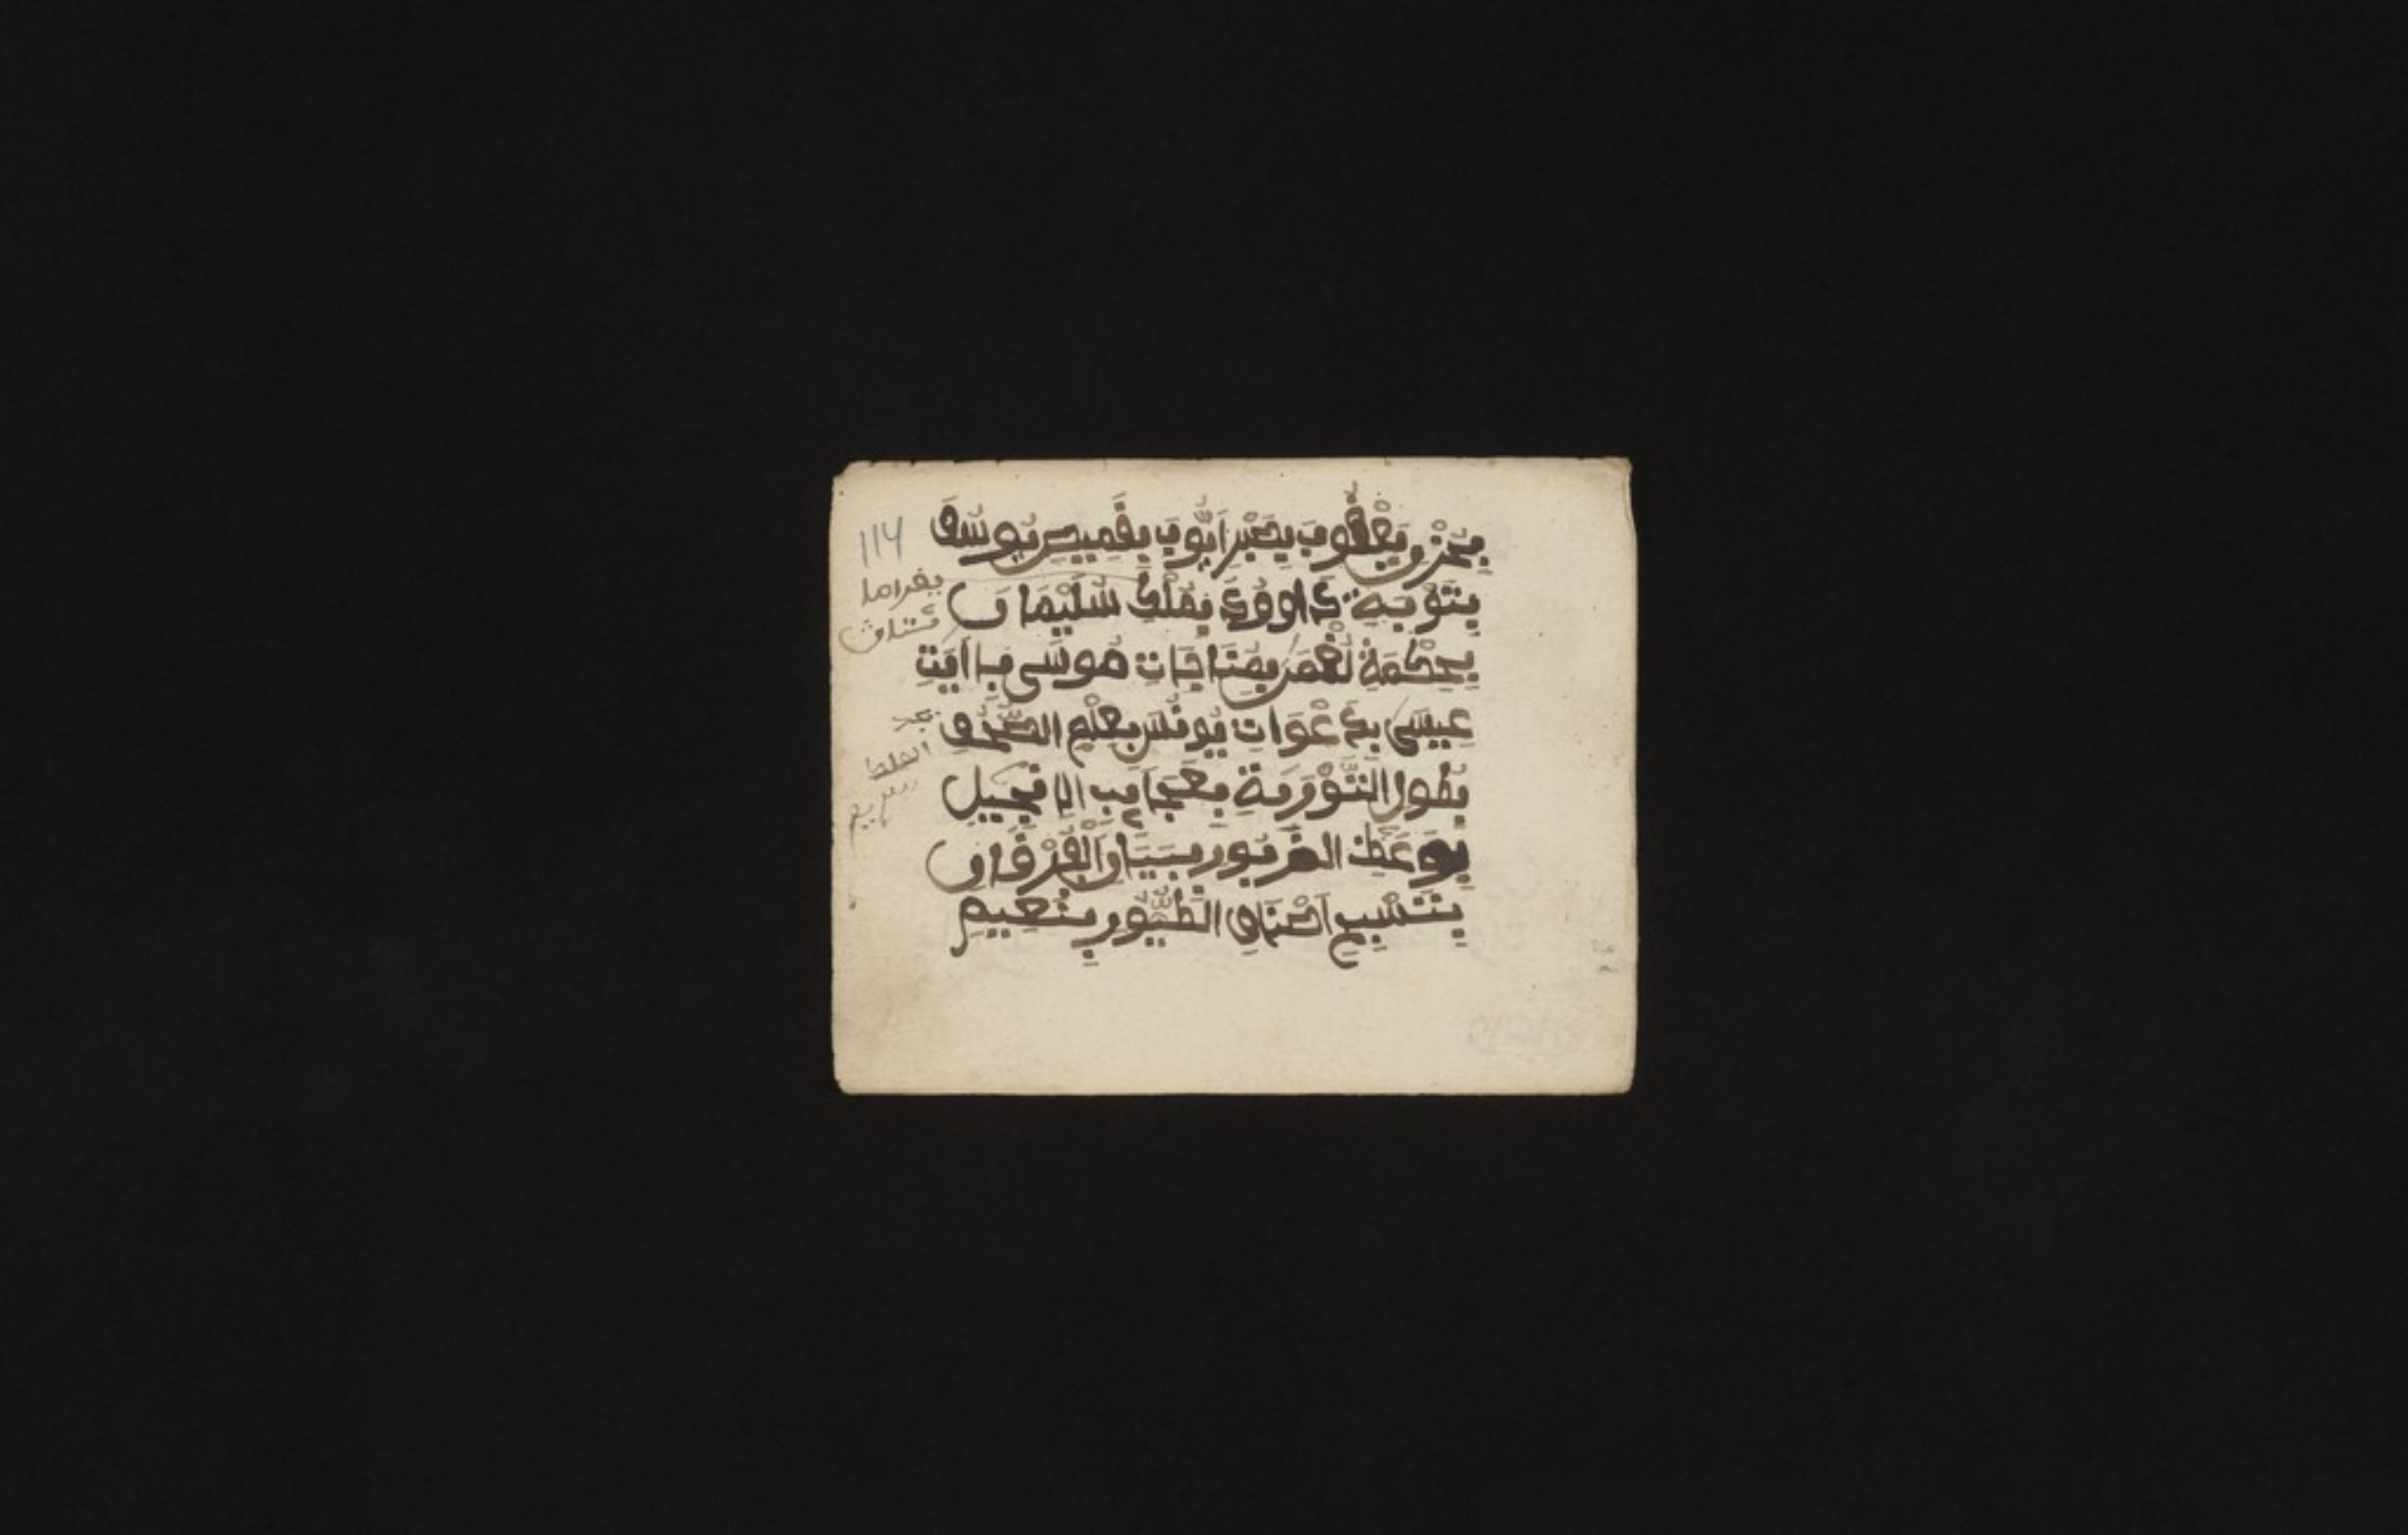 بِحُزْنِ يَعْقُوبَ بِصَبْرِ اَيُّوبَ بِقَمِيصِ يُوسُفَ
بِتَوْبَةِ دَاوُودَ بِمُلْكِ سُلَيْمَانَ
بِحِكْمَةِ لُقْمَنَ بِمُنَاجَاتِ مُوسَى بِاَايَتِ
عِيسَى بِدَعْوَاتِ يُونُسَ بِعِلْمِ الصُّحُفِ
بِطُولِ التَّوْرَيةِ بِعَجَايِبِ الاِنْجِيلِ
بِوَعْظِ الزَّبُورِ بِبَيَانِ الْفُرْقَانِ
بِتَسْبِيحِ اَصْنَافِ الطُّيُورِ بِنَعِيمِ
114